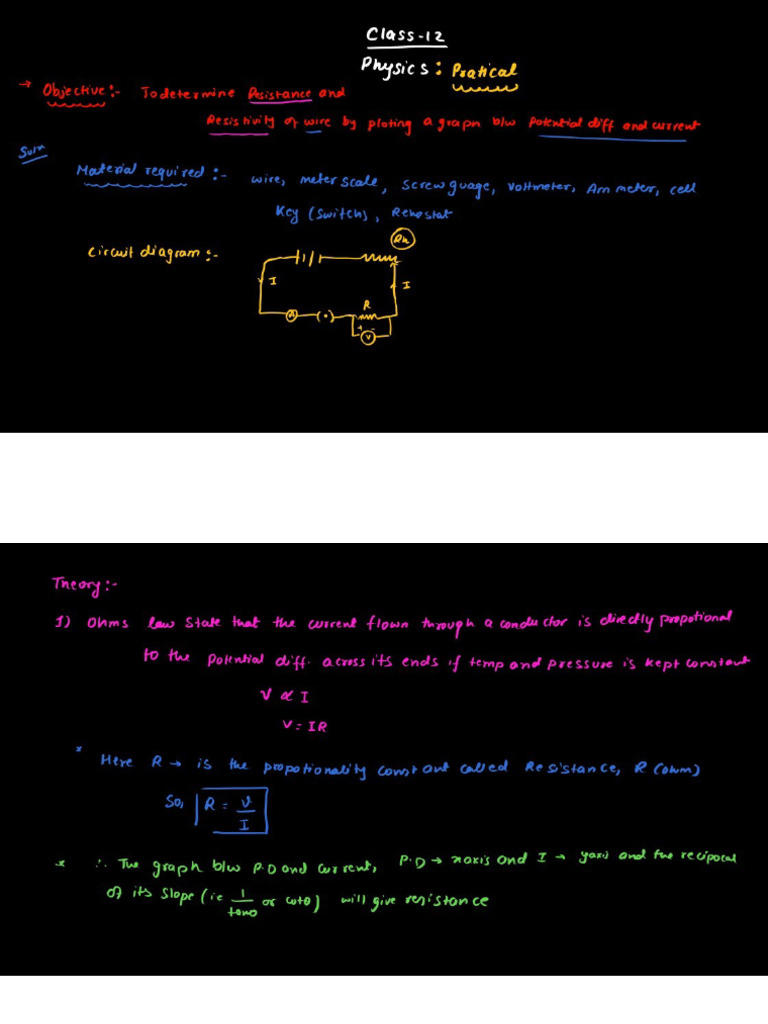 Class-12
Physics: Pratical
→ Objective:- To determine Resistance and
Resistivity of wire by ploting a graph b/w Potential diff and current
Material required:- wire, meter scale, screw guage, Voltmeter, Am meter, cell
Key (Switch), Rehostat
Circuit diagram:-
Rh
I
I
R
A
(•)
+ -
V
Theory:-
1) Ohms law State that the current flown through a conductor is directly propotional
to the potential diff. across its ends if temp and pressure is kept constant
V ∝ I
V = IR
* Here R → is the propotionality constant called Resistance, R (ohm)
So, R = V
I
* ∴ The graph b/w P.D and current, P.D → x axis and I → y axis and the reciprocal
of its slope (ie 1/tanθ or cotθ) will give resistance